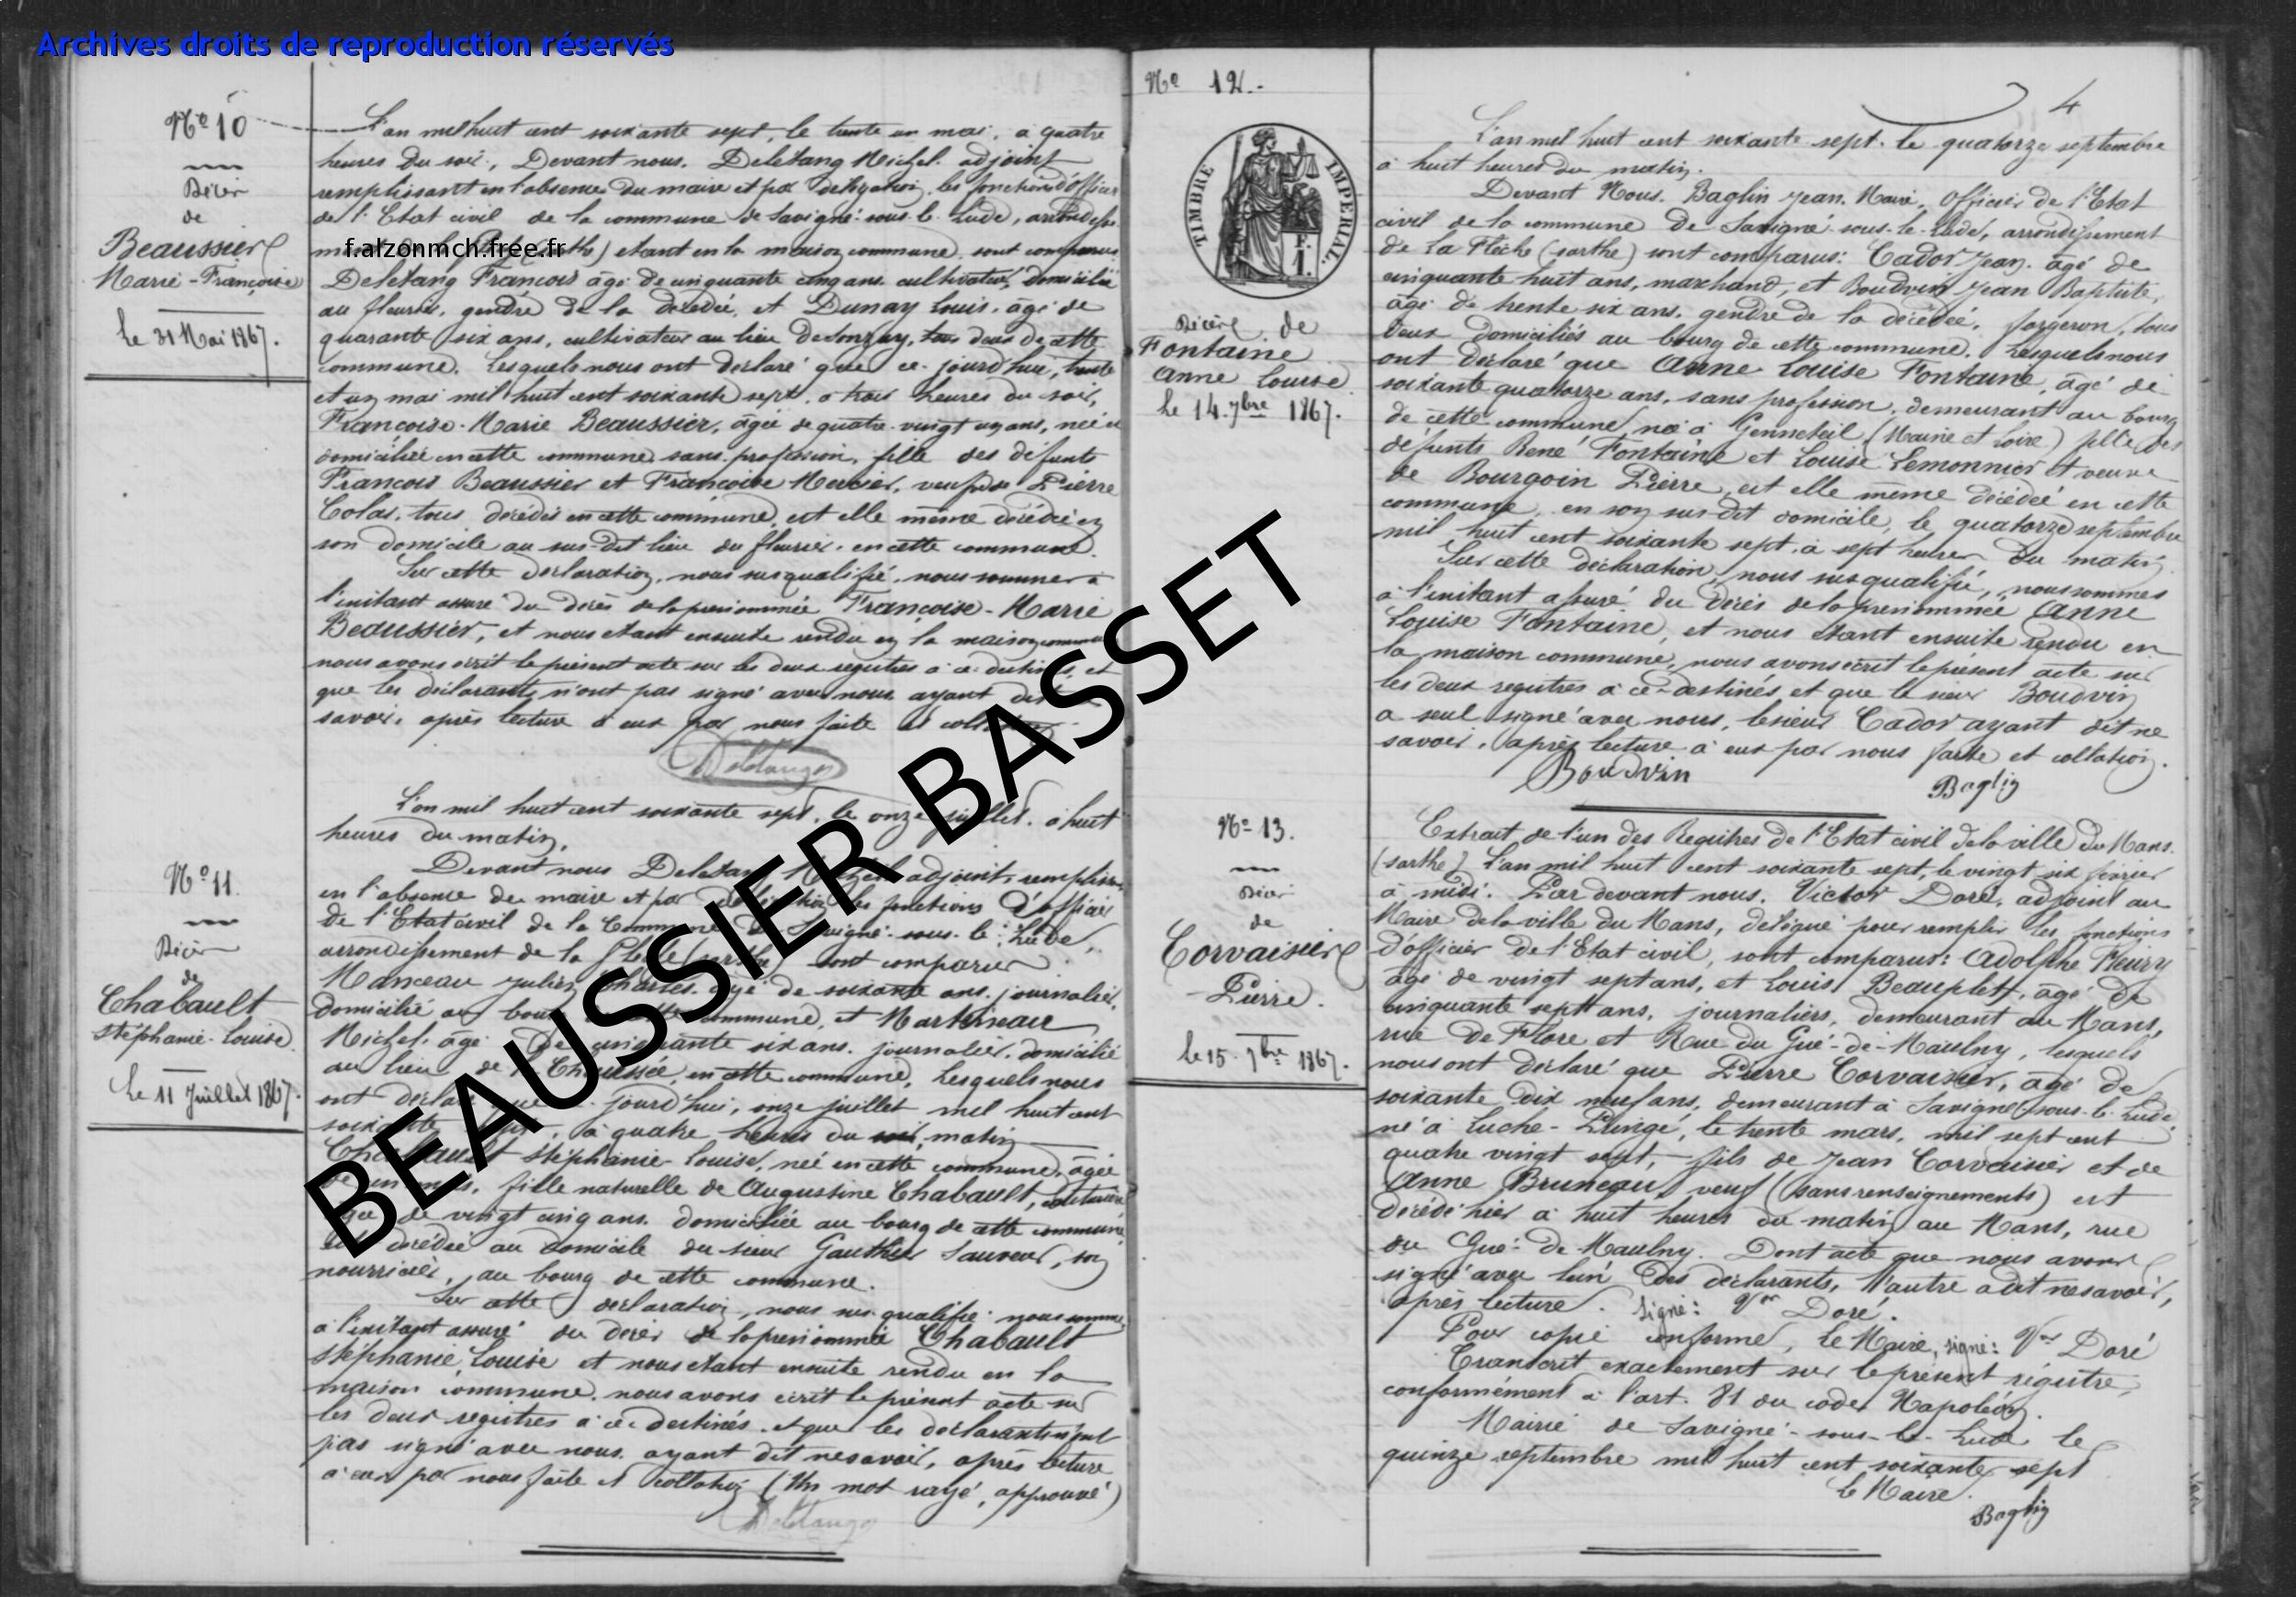 Archives droits de reproduction réservés
f.alzonmch.free.fr
BEAUSSIER BASSET
Nº 10
Décès
de
Beaussier
Marie-Françoise
le 31 Mai 1867.
L'an mil huit cent soixante sept, le trente un mai, à quatre
heures du soir, Devant nous, Deletang Michel adjoint
remplissant en l'absence du maire et par délégation, les fonctions d'officier
de l'Etat civil de la commune de Savigné-sous-le-Lude, arrondisse
étant en la maison commune, sont comparus
Deletang François âgé de cinquante cinq ans, cultivateur, domicilié
au fleurier, gendre de la décédée, et Dunay Louis, âgé de
quarante six ans, cultivateur au lieu de tous deux de cette
commune. Lesquels nous ont déclaré que ce jourd'hui, trente
et un mai mil huit cent soixante sept, à trois heures du soir,
Françoise-Marie Beaussier, âgée de quatre-vingt un ans, née et
domiciliée en cette commune, sans profession, fille des défunts
François Beaussier et Françoise Mercier, veuve de Pierre
Colas, tous décédés en cette commune, est elle même décédée en
son domicile au sus-dit lieu du fleurier, en cette commune.
Sur cette déclaration, nous susqualifié, nous sommes à
l'instant assuré du décès de la prénommée Françoise-Marie
Beaussier, et nous étant ensuite rendu en la maison commune
nous avons écrit le présent acte sur les deux registres à ce destinés, et
que les déclarants n'ont pas signé avec nous, ayant dit
savoir, après lecture à eux par nous faite et collation
Deletang
Nº 11.
Décès
de
Chabault
Stéphanie-Louise
Le 11 Juillet 1867.
L'an mil huit cent soixante sept, le onze juillet, à huit
heures du matin,
Devant nous Deletang Michel adjoint, remplissant
en l'absence du maire et par délégation les fonctions d'officier
de l'Etat civil de la Commune de Savigné-sous-le-Lude,
arrondissement de la Flèche (sarthe) sont comparus
Manceau Julien Charles, âgé de soixante ans, journalier,
domicilié au bourg de cette commune, et Martineau
Michel, âgé de cinquante six ans, journalier, domicilié
au lieu de la Chaussée, en cette commune, Lesquels nous
ont déclaré que ce jourd'hui, onze juillet mil huit cent
soixante sept, à quatre heures du soir, matin
Chabault Stéphanie-Louise, née en cette commune, âgée
de un mois, fille naturelle de Augustine Chabault,
âgée de vingt cinq ans, domiciliée au bourg de cette commune,
est décédée au domicile du sieur Gauthier Sauveur, son
nourricier, au bourg de cette commune.
Sur cette déclaration, nous susqualifié nous sommes
à l'instant assuré du décès de la prénommée Chabault
Stéphanie Louise et nous étant ensuite rendu en la
maison commune, nous avons écrit le présent acte sur
les deux registres à ce destinés, et que les déclarants n'ont
pas signé avec nous, ayant dit ne savoir, après lecture
à eux par nous faite et collation (Un mot rayé, approuvé)
Deletang
Nº 12.-
TIMBRE IMPÉRIAL.
F.
1.
Décès de
Fontaine
Anne Louise
le 14 7bre 1867.
4
L'an mil huit cent soixante sept, le quatorze septembre
à huit heures du matin.
Devant Nous, Baglin Jean, Maire, Officier de l'Etat
civil de la commune De Savigné-sous-le-Lude, arrondissement
de La Flèche (sarthe) sont comparus: Cador Jean, âgé de
cinquante huit ans, marchand, et Boudvin Jean Baptiste,
âgé de trente six ans, gendre de la décédée, forgeron, tous
deux domiciliés au bourg de cette commune, Lesquels nous
ont déclaré que Anne Louise Fontaine, âgé de
soixante quatorze ans, sans profession, demeurant au bourg
de cette commune, née à Genneteil (Maine et Loire) fille des
défunts René Fontaine et Louise Lemonnier et veuve
de Bourgoin Pierre, est elle même décédée en cette
commune, en son sus-dit domicile, le quatorze septembre
mil huit cent soixante sept, à sept heures du matin.
Sur cette déclaration, nous susqualifié, nous sommes
à l'instant assuré du décès de la prénommée Anne
Louise Fontaine, et nous étant ensuite rendu en
la maison commune, nous avons écrit le présent acte sur
les deux registres à ce destinés, et que le sieur Boudvin
a seul signé avec nous, le sieur Cador ayant dit ne
savoir, après lecture à eux par nous faite et collation.
Boudvin
Baglin
Nº 13.
Décès
de
Corvaisier
Pierre.
le 15 7bre 1867.
Extrait de l'un des Registres de l'Etat civil de la ville du Mans.
(sarthe) L'an mil huit cent soixante sept, le vingt six février
à midi. Par devant nous, Victor Doré, adjoint au
Maire de la ville du Mans, délégué pour remplir les fonctions
d'officier de l'Etat civil, sont comparus: Adolphe Fleury
âgé de vingt sept ans, et Louis Beauplet, âgé de
cinquante sept ans, journaliers, demeurant au Mans,
rue de Flore et Rue du Gué-de-Maulny, lesquels
nous ont déclaré que Pierre Corvaisier, âgé de
soixante dix neuf ans, demeurant à Savigné-sous-le-Lude
né à Luché-Pringé, le trente mars, mil sept cent
quatre vingt sept, fils de Jean Corvaisier et de
Anne Bruneau, veuf (sans renseignements) est
décédé hier à huit heures du matin au Mans, rue
du Gué-de-Maulny. Dont acte que nous avons
signé avec l'un des déclarants, l'autre a dit ne savoir,
après lecture. Signé: Vor Doré.
Pour copie conforme, Le Maire, signé: Vor Doré
Transcrit exactement sur le présent régistre,
conformément à l'art. 81 du code Napoléon.
Mairie de Savigné-sous-le-Lude le
quinze septembre mil huit cent soixante sept
Le Maire.
Baglin